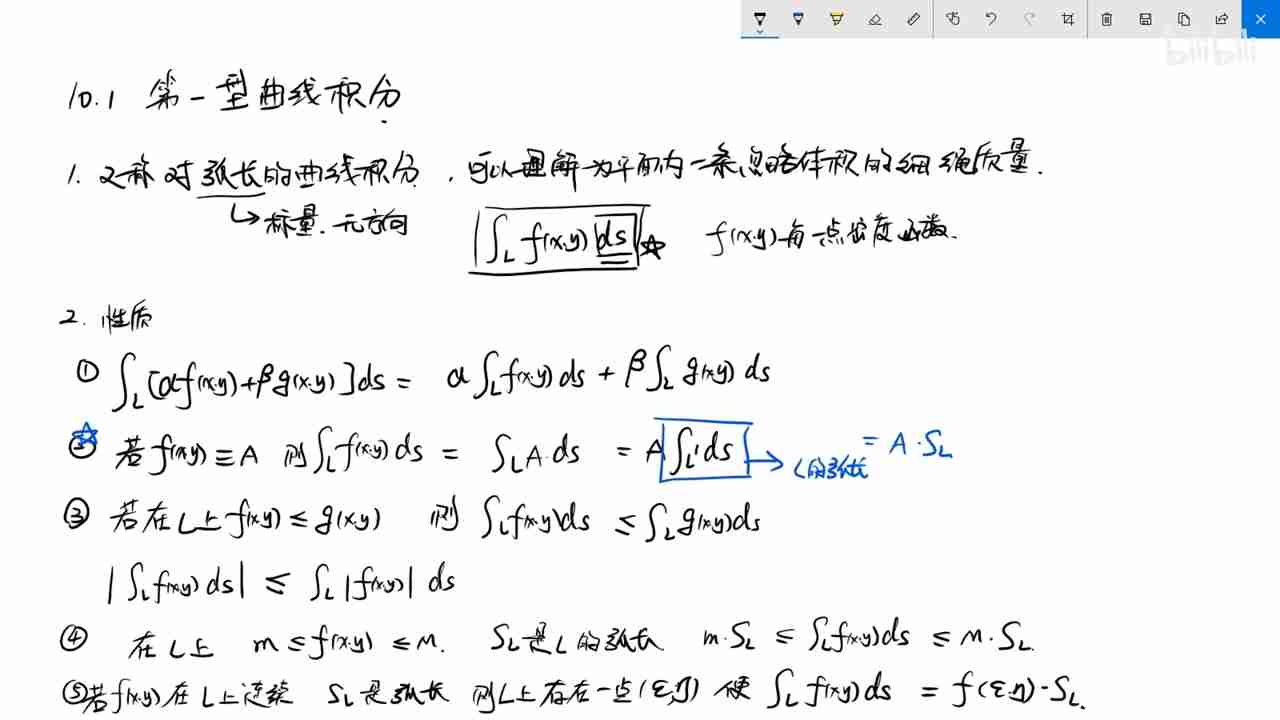 bilibili
10.1 第一型曲线积分
1. 又称对弧长的曲线积分，可以理解为平面内一条忽略体积的细绳质量.
↳标量.无方向
∫_L f(x,y) ds ☆ f(x,y)每一点密度函数.
2. 性质
① ∫_L [αf(x,y)+βg(x,y)]ds = α∫_L f(x,y)ds + β∫_L g(x,y)ds
② 若f(x,y)≡A 则∫_L f(x,y)ds = ∫_L A·ds = A∫_L 1ds → L的弧长 = A·S_L
③ 若在L上f(x,y)≤g(x,y) 则 ∫_L f(x,y)ds ≤ ∫_L g(x,y)ds
|∫_L f(x,y)ds| ≤ ∫_L |f(x,y)| ds
④ 在L上 m≤f(x,y)≤M. S_L是L的弧长 m·S_L ≤ ∫_L f(x,y)ds ≤ M·S_L.
⑤若f(x,y)在L上连续 S_L是弧长 则L上存在一点(ξ,η) 使 ∫_L f(x,y)ds = f(ξ,η)·S_L.